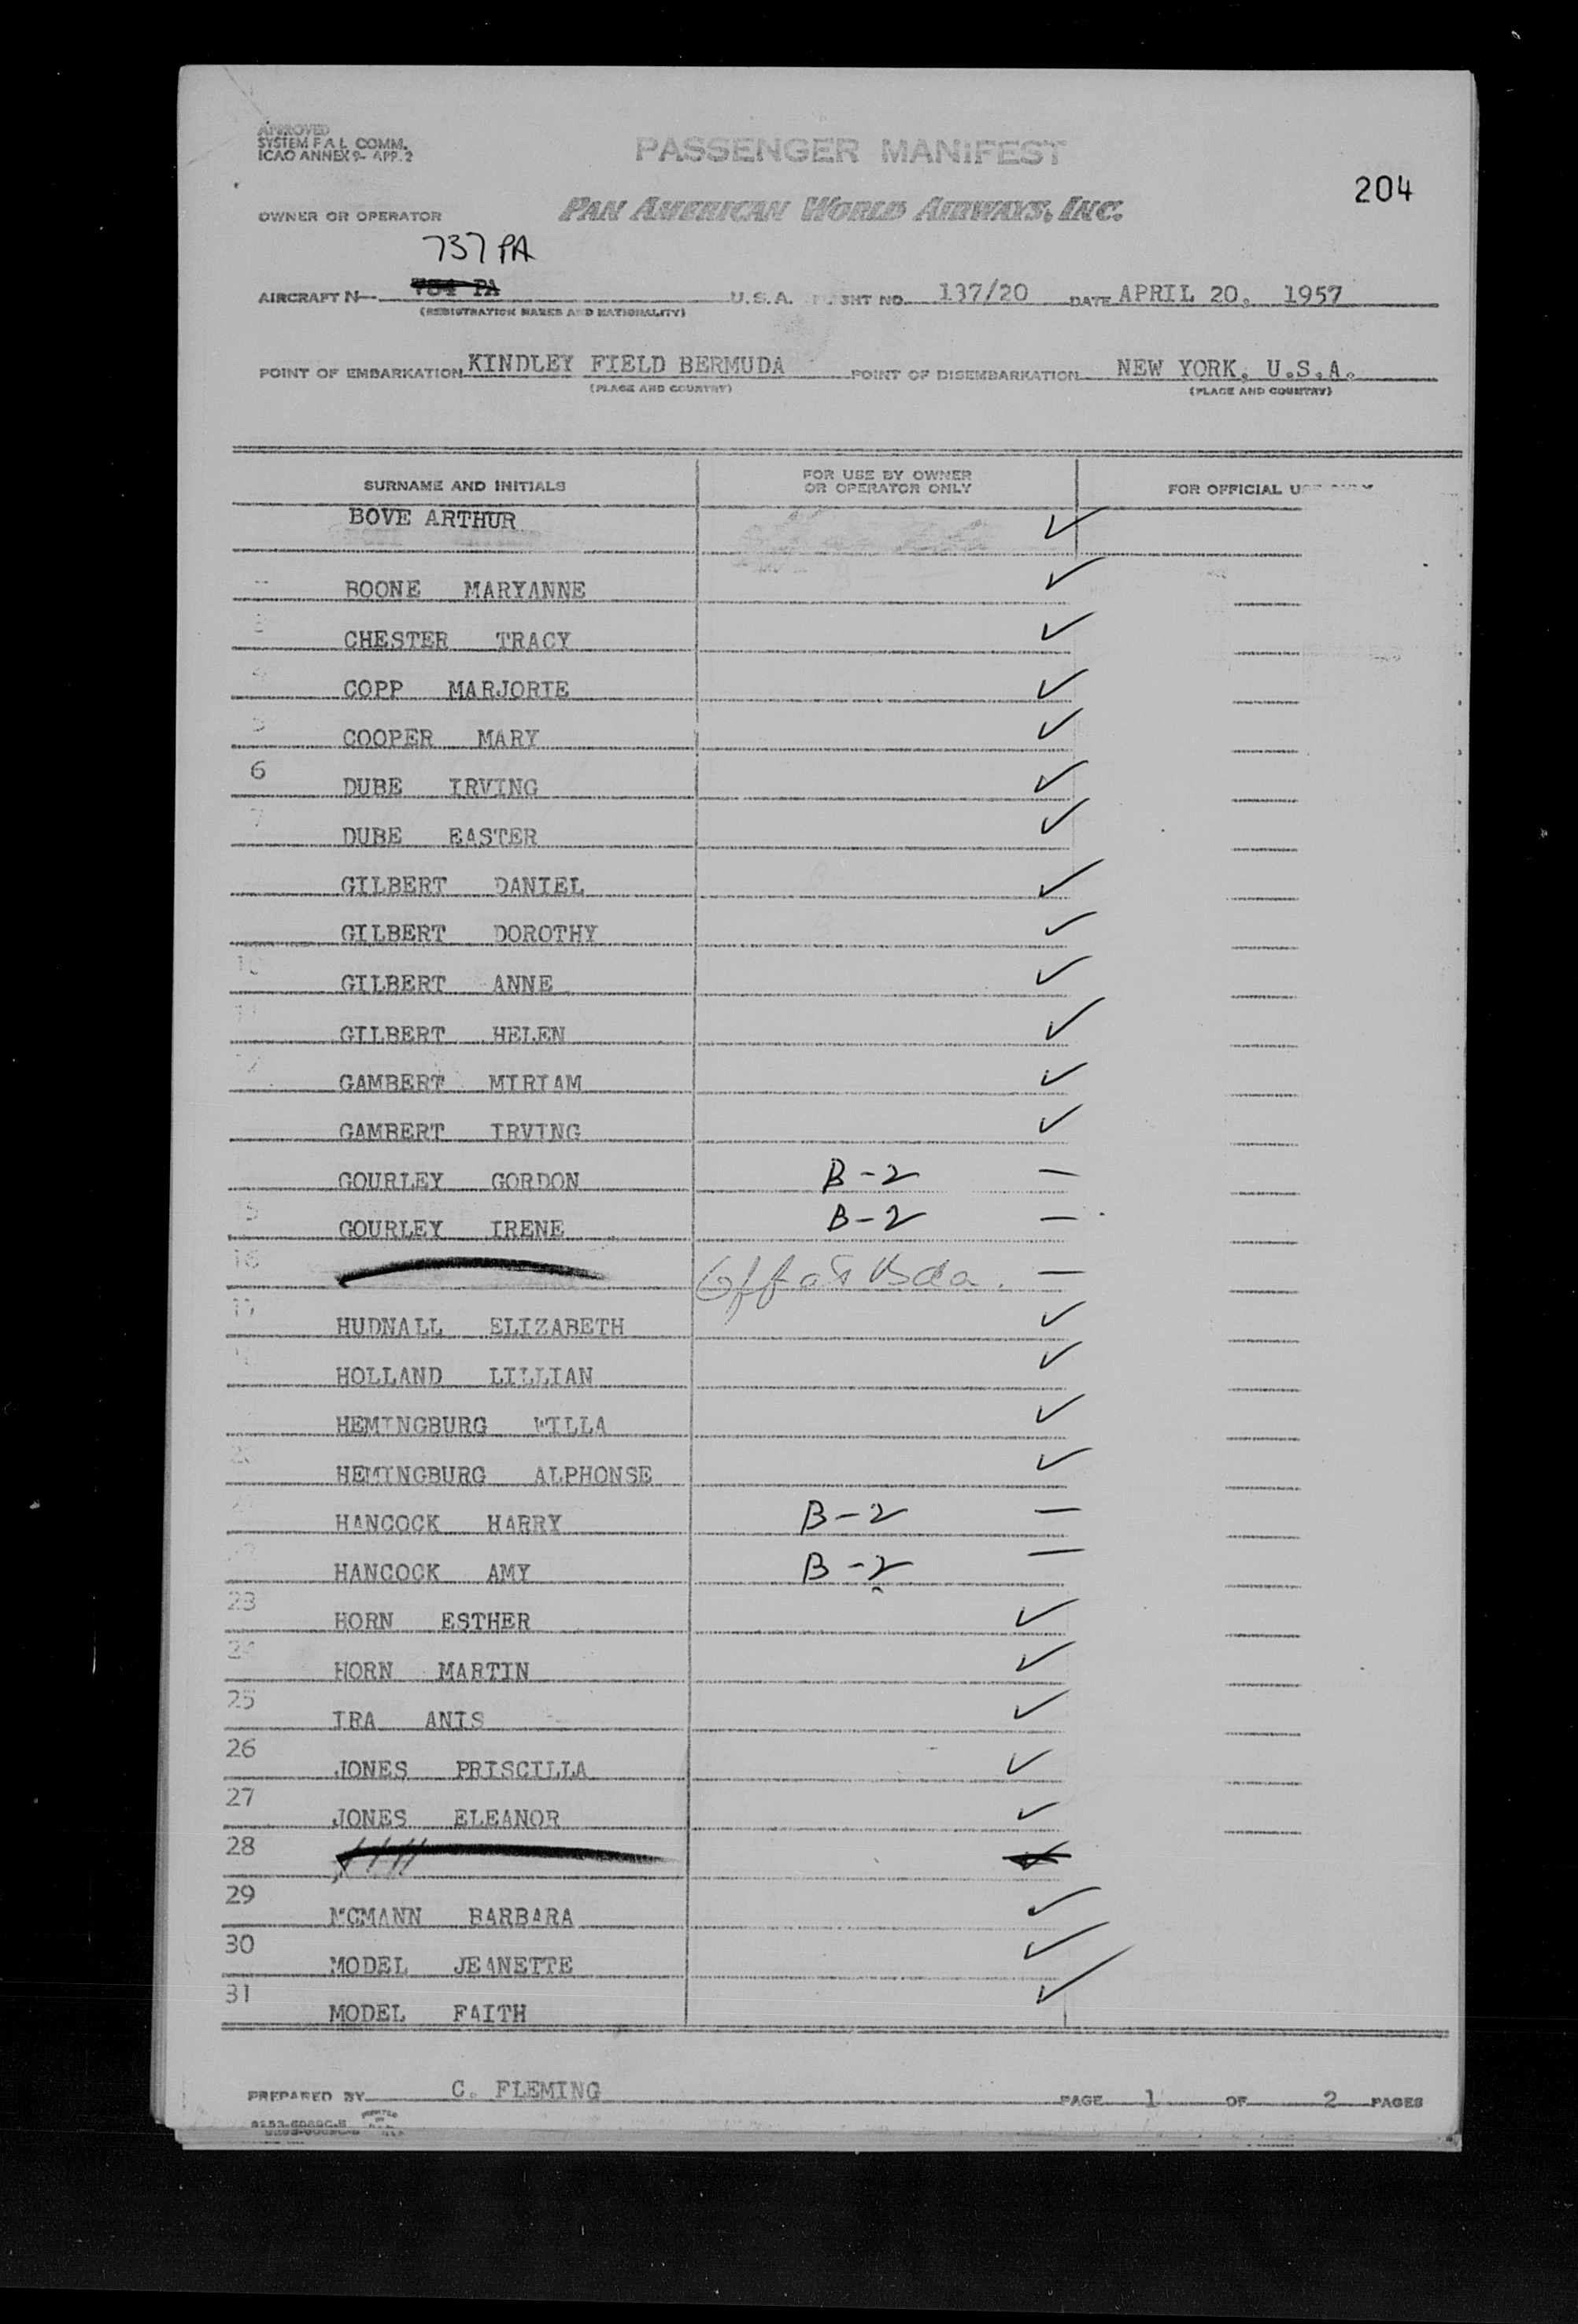 APPROVED
SYSTEM F A L COMM.
ICAO ANNEX 9- APP. 2
PASSENGER MANIFEST
204
OWNER OR OPERATOR
PAN AMERICAN WORLD AIRWAYS, INC.
737 PA
AIRCRAFT N 784 PA U.S.A. FLIGHT NO. 137/20 DATE APRIL 20, 1957
(REGISTRATION MARKS AND NATIONALITY)
POINT OF EMBARKATION KINDLEY FIELD BERMUDA POINT OF DISEMBARKATION NEW YORK, U.S.A.
(PLACE AND COUNTRY) (PLACE AND COUNTRY)
SURNAME AND INITIALS FOR USE BY OWNER OR OPERATOR ONLY FOR OFFICIAL USE ONLY
BOVE ARTHUR ✓
BOONE MARYANNE ✓
3 CHESTER TRACY ✓
4 COPP MARJORIE ✓
5 COOPER MARY ✓
6 DUBE IRVING ✓
7 DUBE EASTER ✓
GILBERT DANIEL ✓
GILBERT DOROTHY ✓
10 GILBERT ANNE ✓
11 GILBERT HELEN ✓
12 GAMBERT MIRIAM ✓
GAMBERT IRVING ✓
GOURLEY GORDON B-2 —
15 GOURLEY IRENE B-2 —
16 Off at Bda. —
17 HUDNALL ELIZABETH ✓
18 HOLLAND LILLIAN ✓
HEMINGBURG WILLA ✓
20 HEMINGBURG ALPHONSE ✓
21 HANCOCK HARRY B-2 —
22 HANCOCK AMY B-2 —
23 HORN ESTHER ✓
24 HORN MARTIN ✓
25 IRA ANIS ✓
26 JONES PRISCILLA ✓
27 JONES ELEANOR ✓
28
29 MCMANN BARBARA ✓
30 MODEL JEANETTE ✓
31 MODEL FAITH ✓
PREPARED BY C. FLEMING PAGE 1 OF 2 PAGES